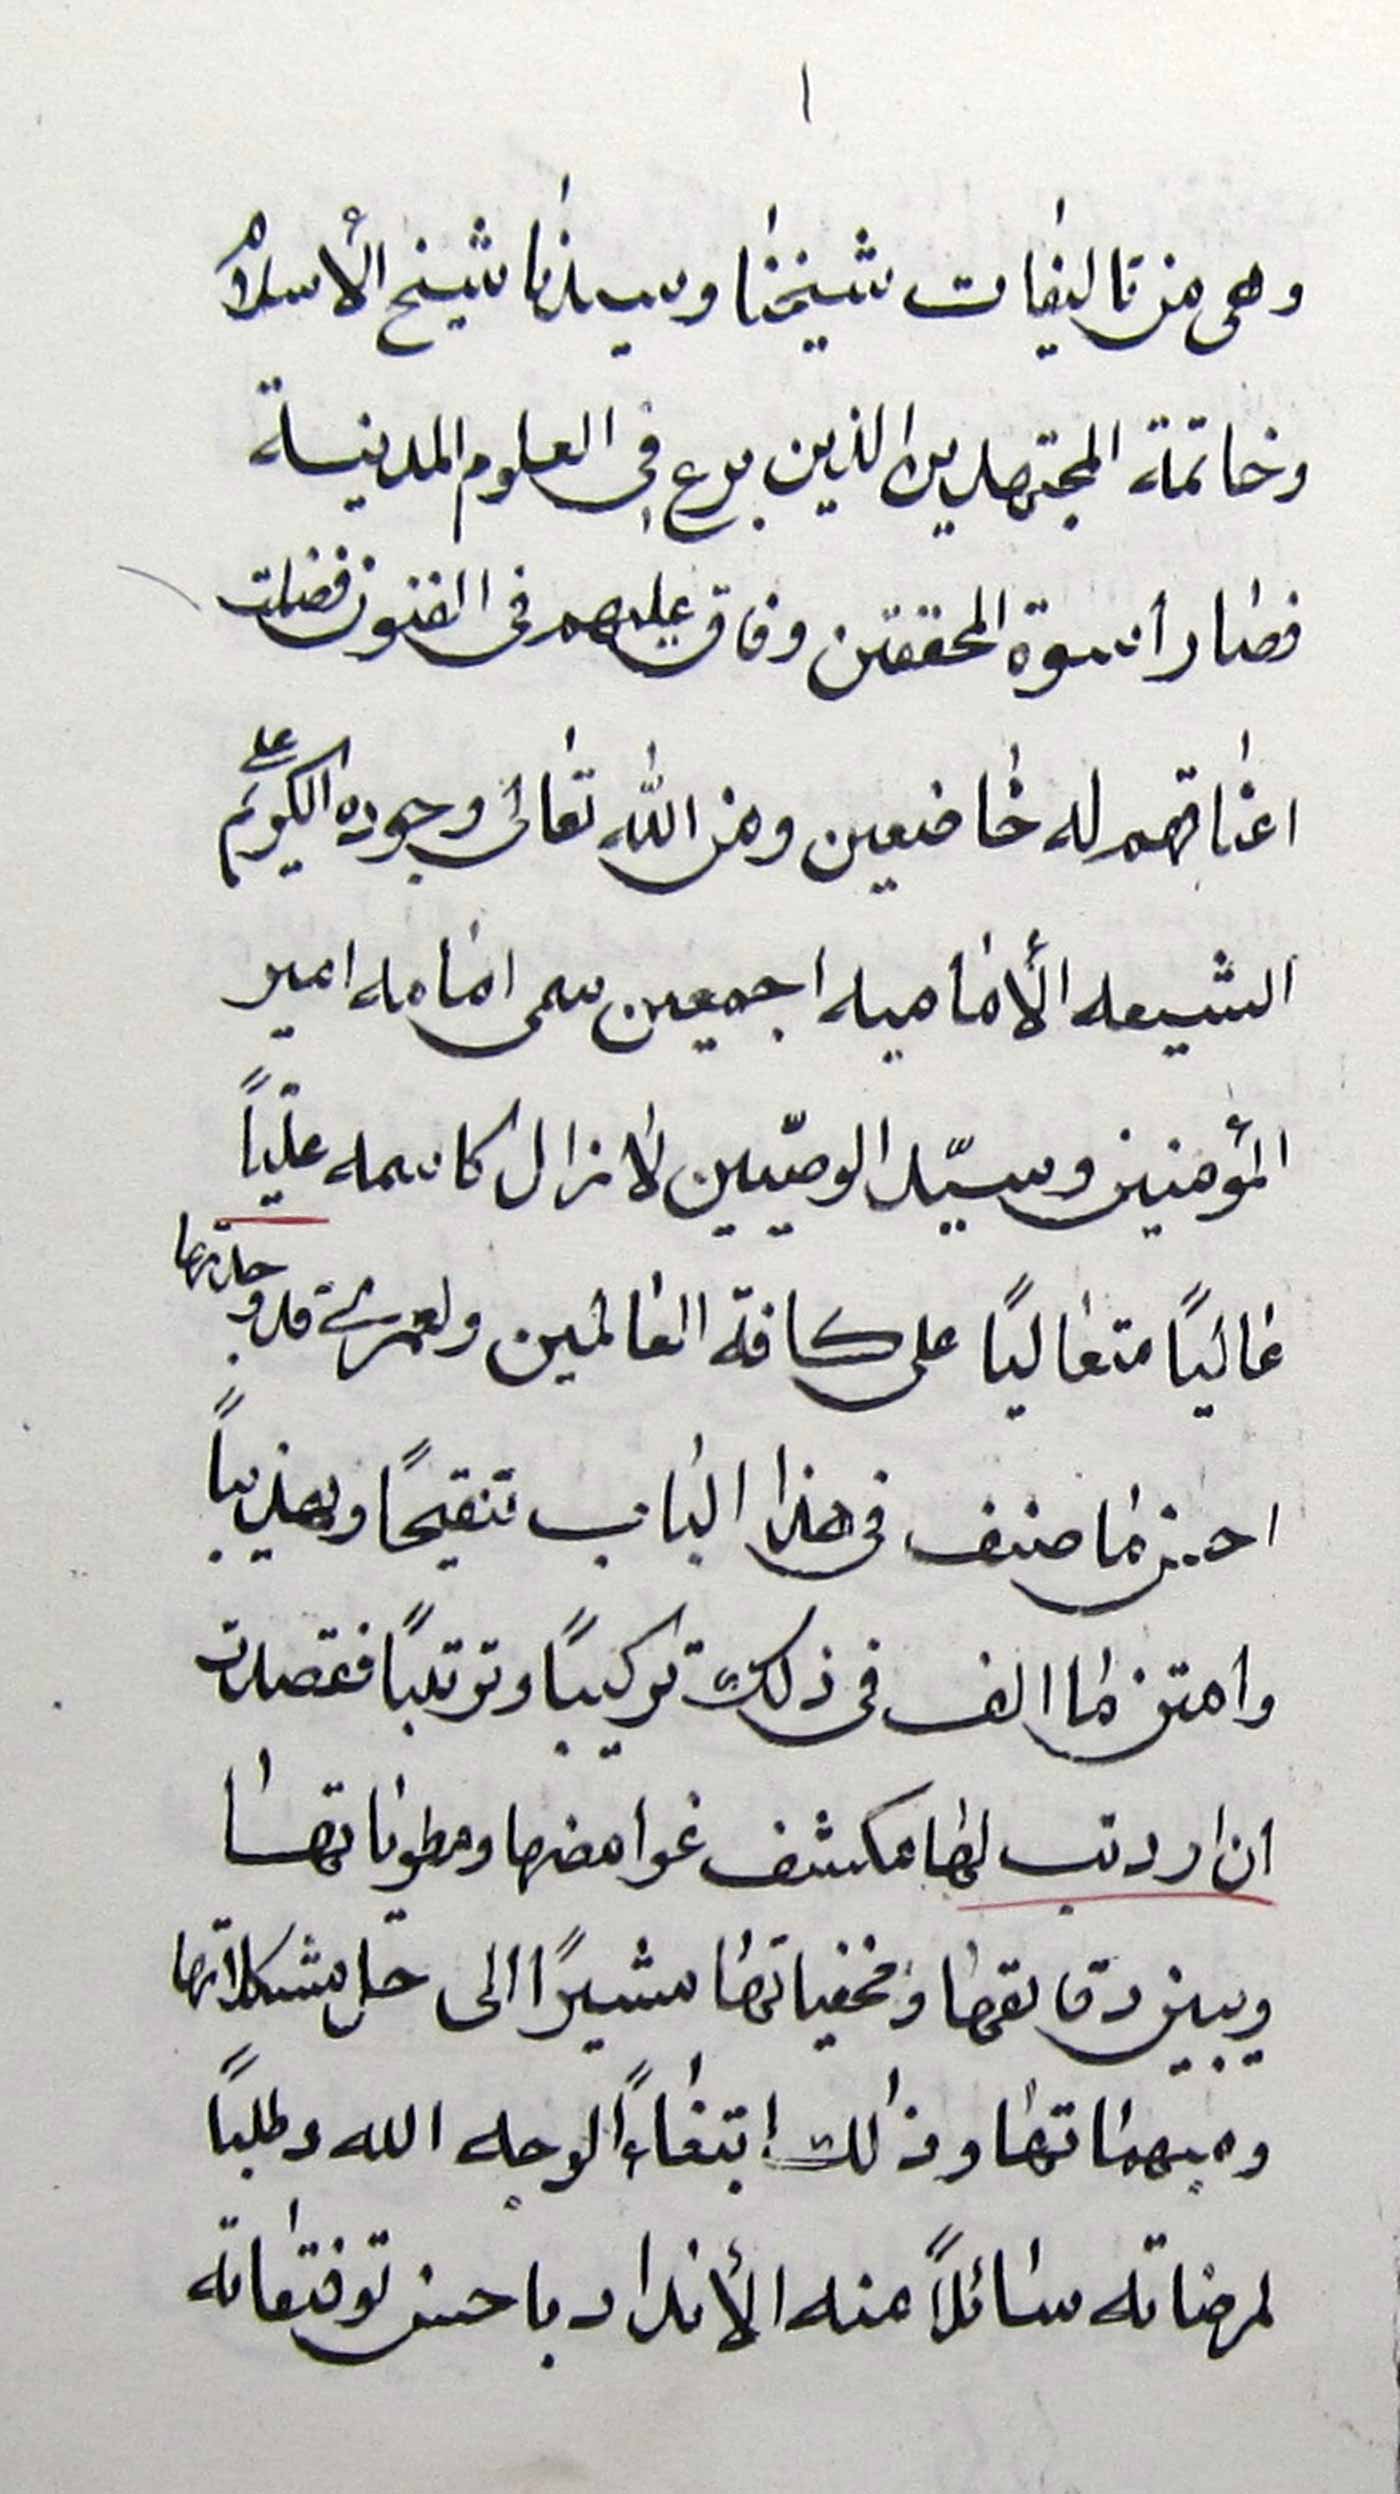 ١
وهى من تاليفات شيخنا وسيدنا شيخ الأسلام
وخاتمة المجتهدين الذين برع فى العلوم المدنيسة
فصار أسوة المحققين وفاق عليهم فى الفنون فضلت
اعناقهم له خاضعين ومن الله تعالى وجوده الكريم على
الشيعه الأماميه اجمعين سمى امامه امير
المؤمنين وسيّد الوصيّين لازال كاسمه عليّاً
غاليًا متعاليًا على كافة العالمين ولعمرى قد وجدتها
احسن ما صنف فى هذا الباب تنقيحًا وتهذيباً
وامتن ما الف فى ذلك تركيبًا وترتيبًا فقصدت
ان اردتب لها مكشف غوامضها ومطوياتها
ويبين دقايقها ومخفياتها مشيرًا الى حل مشكلاتها
ومبهماتها وذلك إبتغاءً الوجه الله وطلباً
لمرضاته سائلاً منه الأنداد باحسن توفيقاته